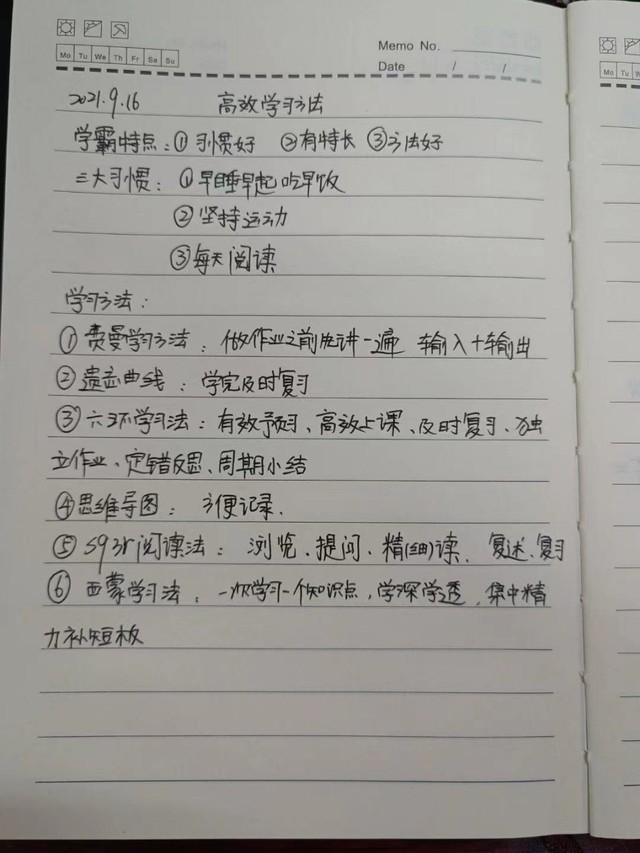 Mo Tu We Th Fr Sa Su
Memo No.
Date / /
Mo Tu
2021.9.16 高效学习方法
学霸特点：①习惯好 ②有特长 ③方法好
三大习惯：①早睡早起吃早饭
②坚持运动
③每天阅读
学习方法：
①费曼学习方法：做作业之前先讲一遍 输入+输出
②遗忘曲线：学完及时复习
③六环学习法：有效预习、高效上课、及时复习、独
立作业、定错反思、周期小结
④思维导图：方便记录.
⑤sq3r阅读法：浏览、提问、精(细)读、复述、复习
⑥西蒙学习法：一次学习一个知识点，学深学透，集中精
力补短板